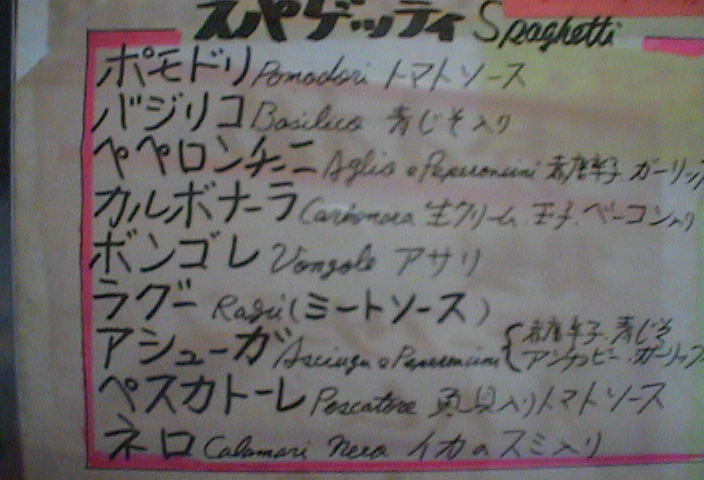 スパゲッティ Spaghetti
ポモドリ Pomodori トマトソース
バジリコ Basilico 青じそ入り
ペペロンチーニ Aglio e Peperoncini 赤唐辛子 ガーリック
カルボナーラ Carbonara 生クリーム.玉子.ベーコン入り
ボンゴレ Vongole アサリ
ラグー Ragú (ミートソース)
アシューガ Asciuga e Peperoncini { 赤唐辛子.青じそ
アンチョビー.ガーリック
ペスカトーレ Pescatore 魚貝入りトマトソース
ネロ Calamari Nero イカのスミ入り